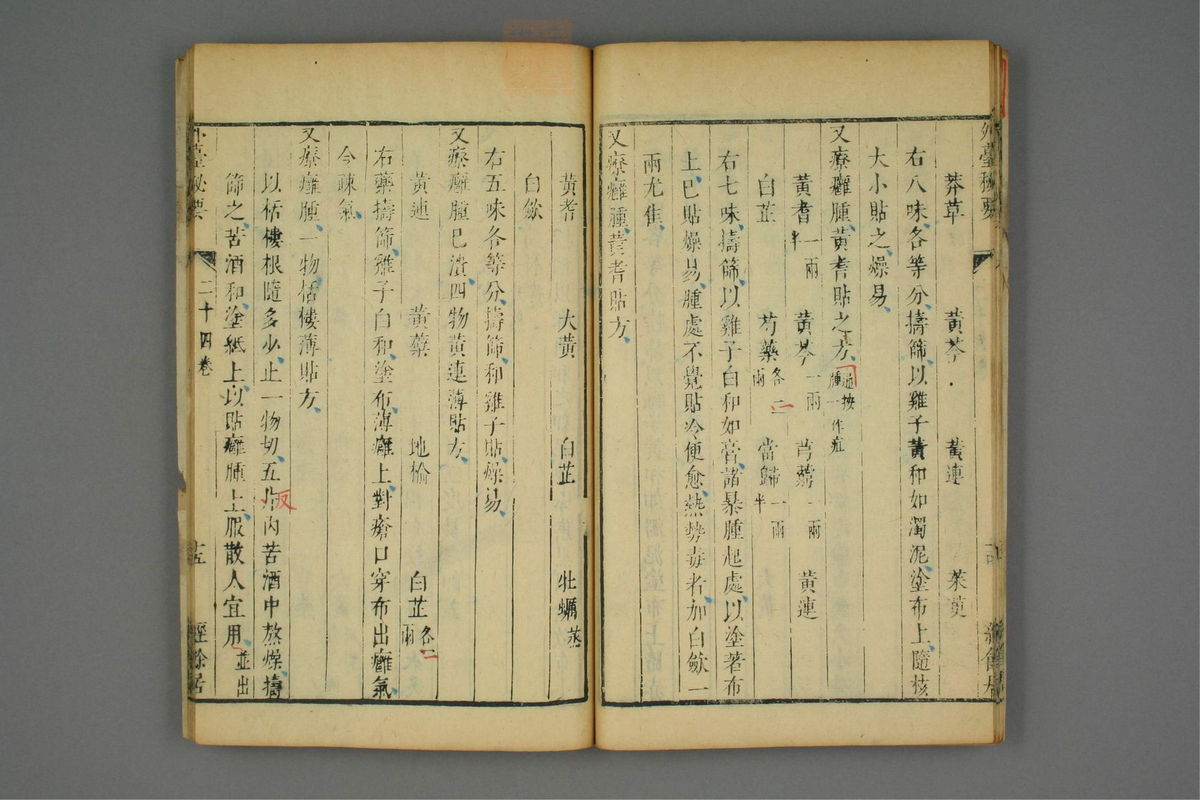 莽草 黃芩 黃連 茱萸
右八味各等分擣篩以雞子黃和如濁泥塗布上隨核
大小貼之燥易
又療癰腫黃耆貼之方 通按腫一作疽
黃耆一兩半 黃芩一兩 芎藭一兩 黃連
白芷 芍藥各二兩 當歸一兩半
右七味擣篩以雞子白和如膏諸暴腫起處以塗著布
上巳貼燥易腫處不覺貼冷便愈熱勢毒者加白歛一
兩尤佳
又療癰腫黃耆貼方
黃耆 大黃 白芷 牡蠣蒸
白歛
右五味各等分擣篩和雞子貼燥易
又療癰腫巳潰四物黃連薄貼方
黃連 黃蘗 地榆 白芷各二兩
右藥擣篩雞子白和塗布薄癰上對瘡口穿布出癰氣
令疎氣
又療癰腫一物栝樓薄貼方
以栝樓根隨多少止一物切五片內苦酒中熬燥擣
反
篩之苦酒和塗紙上以貼癰腫上服散人宜用並出
外臺秘要 二十四卷 十五 經餘居